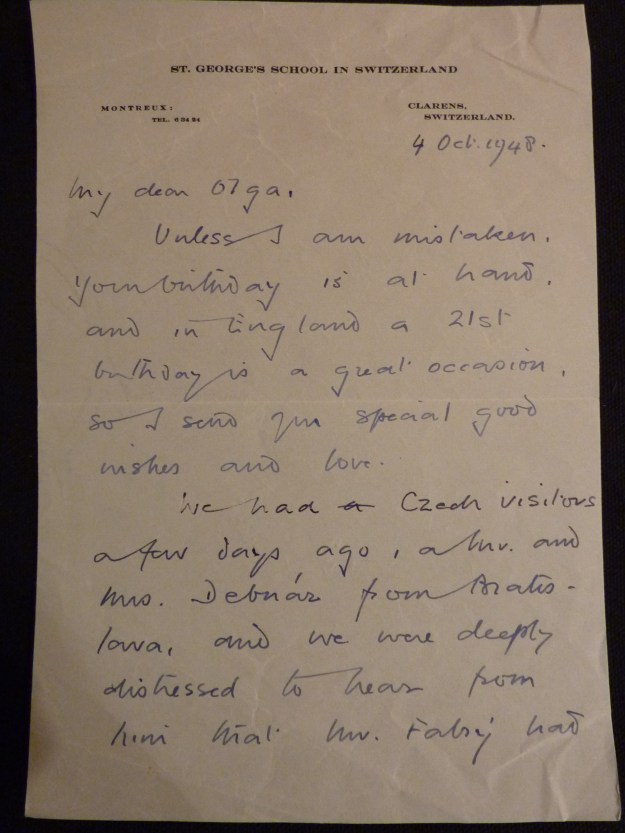 ST. GEORGE'S SCHOOL IN SWITZERLAND
MONTREUX:
TEL. 6 24 24
CLARENS,
SWITZERLAND.
4 Oct. 1948.
My dear Olga,
Unless I am mistaken,
your birthday is at hand,
and in England a 21st
birthday is a great occasion,
so I send you special good
wishes and love.
We had a Czech visitors
a few days ago, a Mr. and
Mrs. Debnár from Bratis-
lava, and we were deeply
distressed to hear from
him that Mr. Fabrý had